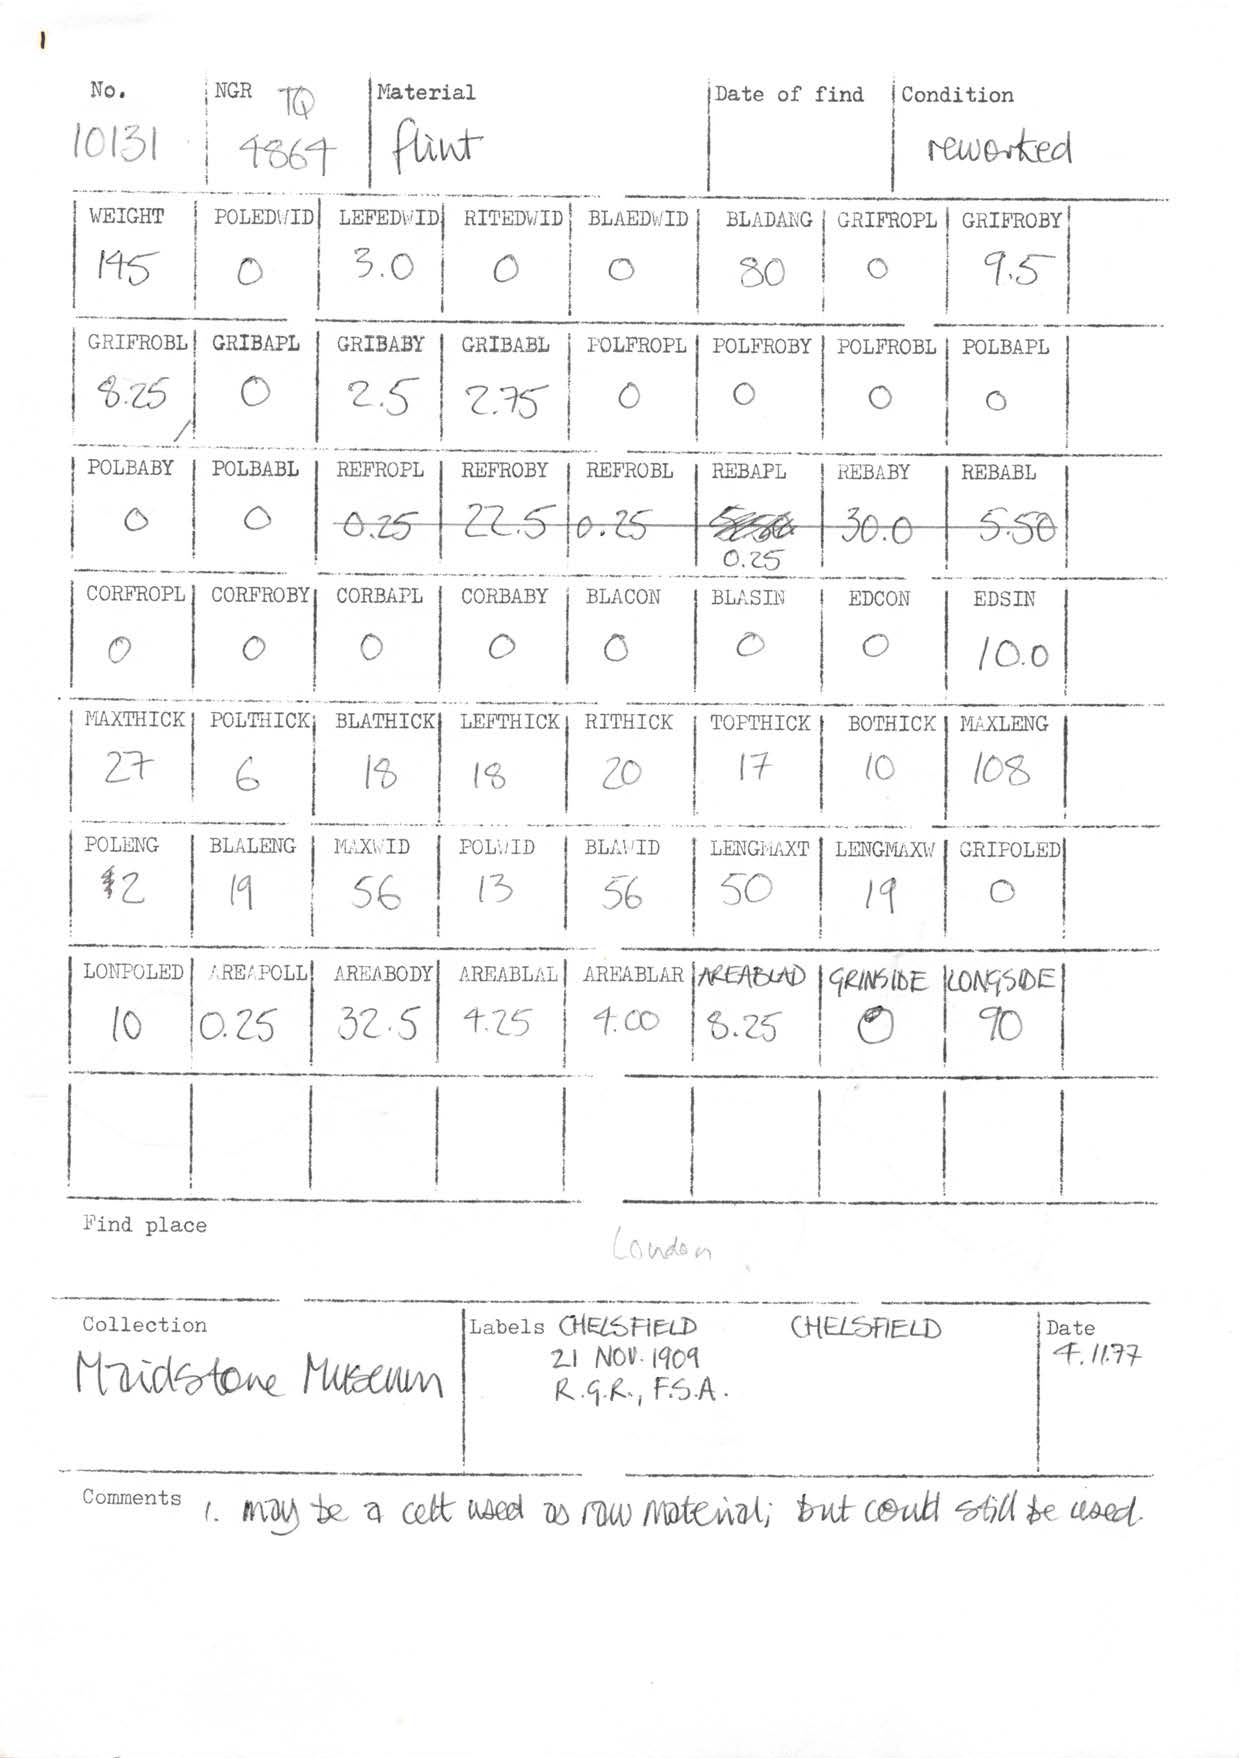 1
No. NGR TQ Material Date of find Condition
10131 4864 flint reworked
WEIGHT POLEDWID LEFEDWID RITEDWID BLAEDWID BLADANG GRIFROPL GRIFROBY
145 0 3.0 0 0 80 0 9.5
GRIFROBL GRIBAPL GRIBABY GRIBABL POLFROPL POLFROBY POLFROBL POLBAPL
8.25 0 2.5 2.75 0 0 0 0
POLBABY POLBABL REFROPL REFROBY REFROBL REBAPL REBABY REBABL
0 0 0.25 22.5 0.25 30.0 5.50
0.25
CORFROPL CORFROBY CORBAPL CORBABY BLACON BLASIN EDCON EDSIN
0 0 0 0 0 0 0 10.0
MAXTHICK POLTHICK BLATHICK LEFTHICK RITHICK TOPTHICK BOTHICK MAXLENG
27 6 18 18 20 17 10 108
POLENG BLALENG MAXWID POLWID BLAWID LENGMAXT LENGMAXW GRIPOLED
2 19 56 13 56 50 19 0
LONPOLED AREAPOLL AREABODY AREABLAL AREABLAR AREABLAD GRINSIDE LONGSIDE
10 0.25 32.5 4.25 4.00 8.25 0 90
Find place
London
Collection Labels CHELSFIELD CHELSFIELD Date
Maidstone Museum 21 NOV. 1909 4.11.77
R.G.R., F.S.A.
Comments 1. may be a celt used as raw material; but could still be used.